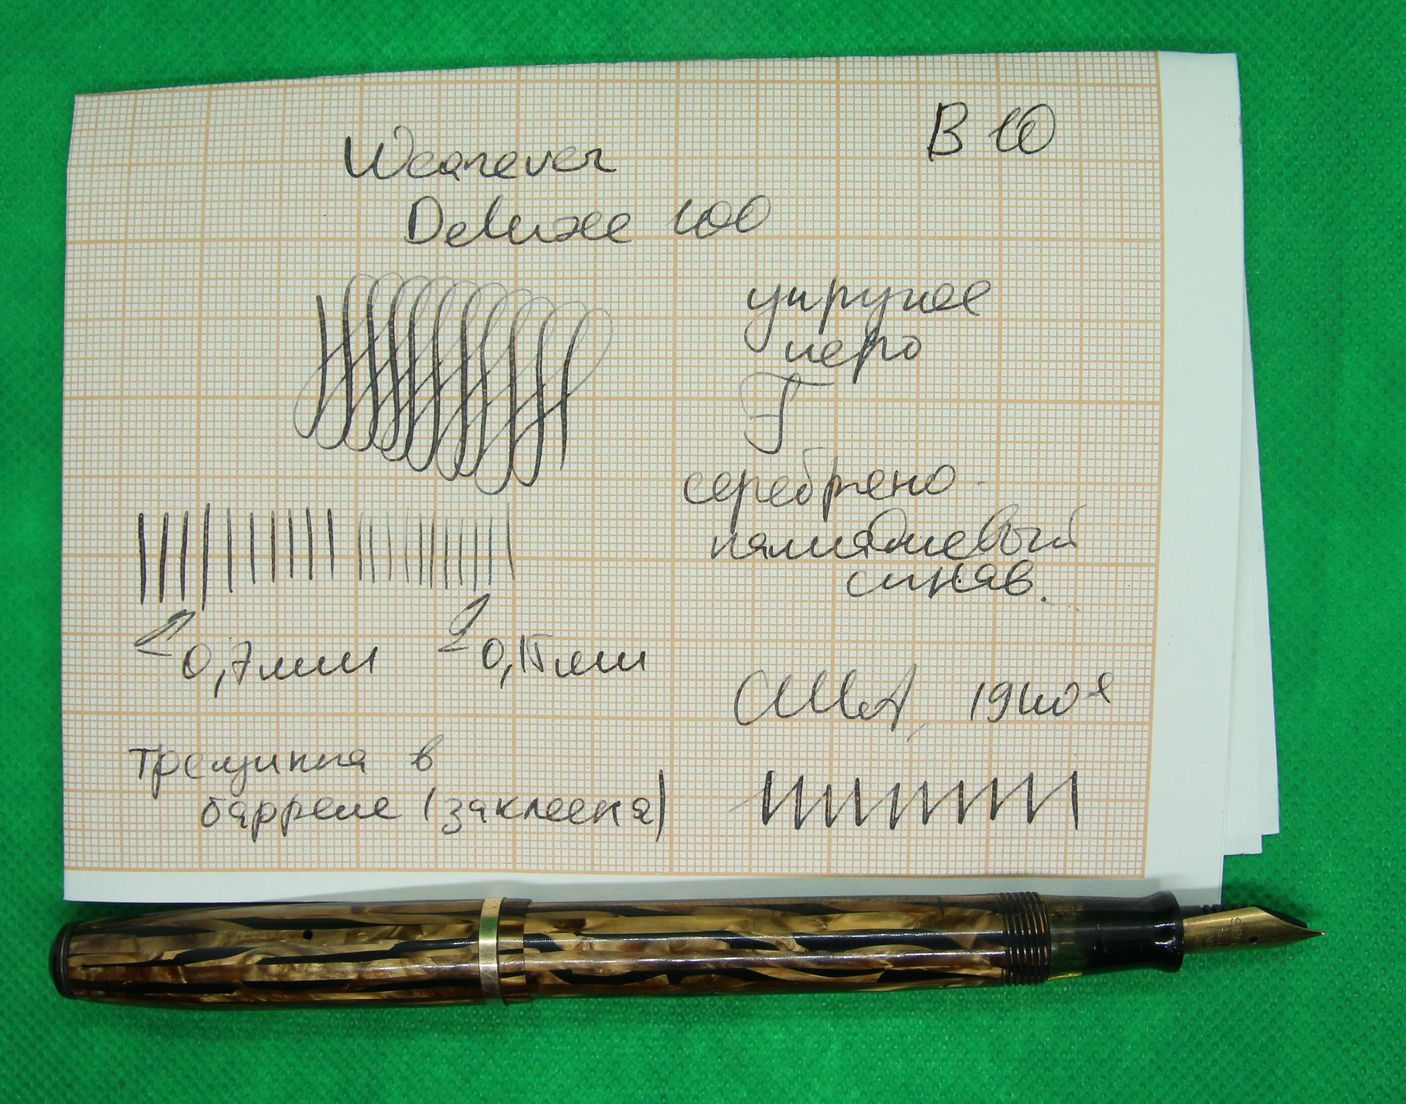 В 10
Wearever
DeLuxe 100
упругое
перо
F
серебрено-
палладиевый
сплав.
0,7мм 0,15мм
США, 1940е
трещинка в
барреле (заклеена)